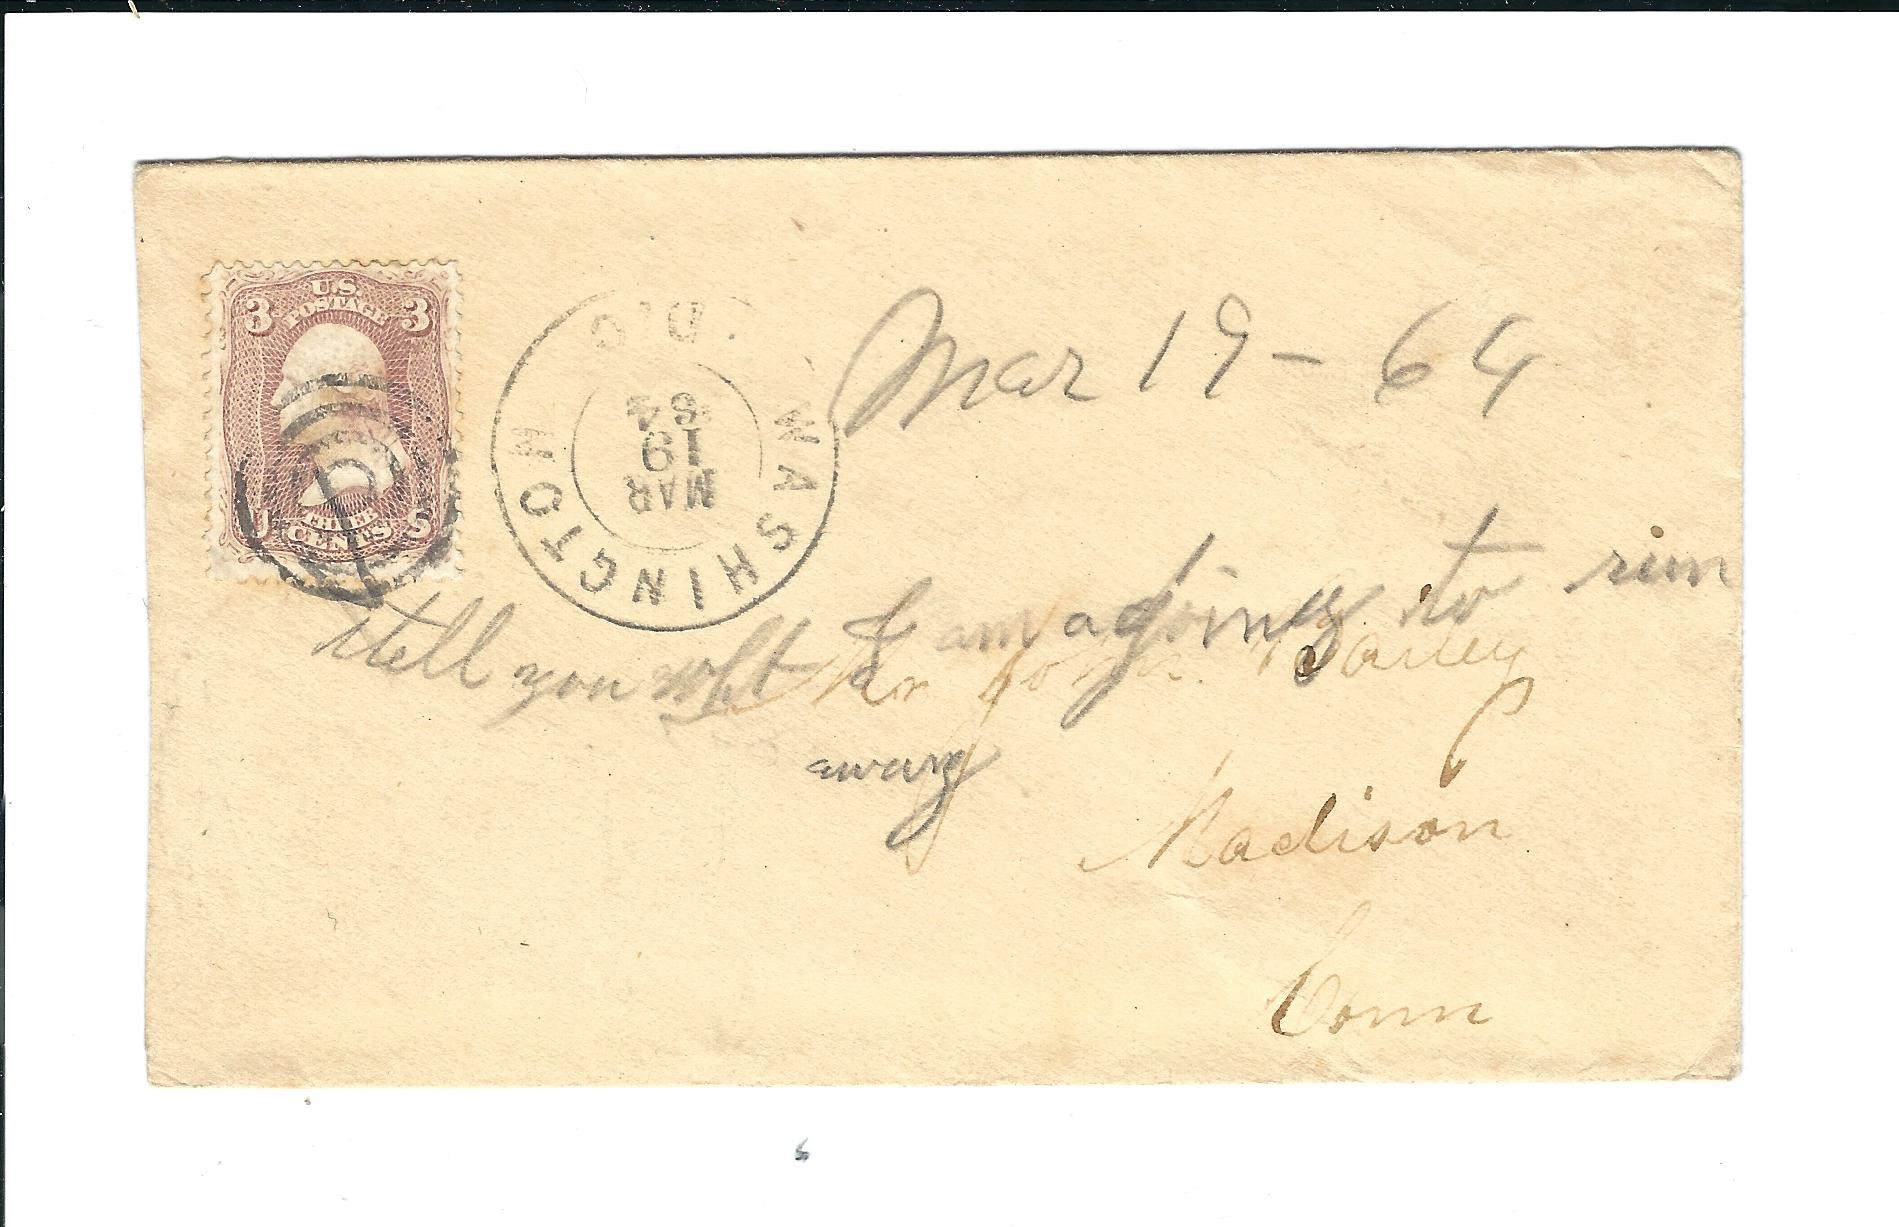 U.S.
POSTAGE
3 3
U S
THREE
CENTS
WASHINGTON D.C.
MAR
19
64
Mar 19 - 64
tell you wht I am agoing to run
away
Mr John Bailey
Madison
Conn